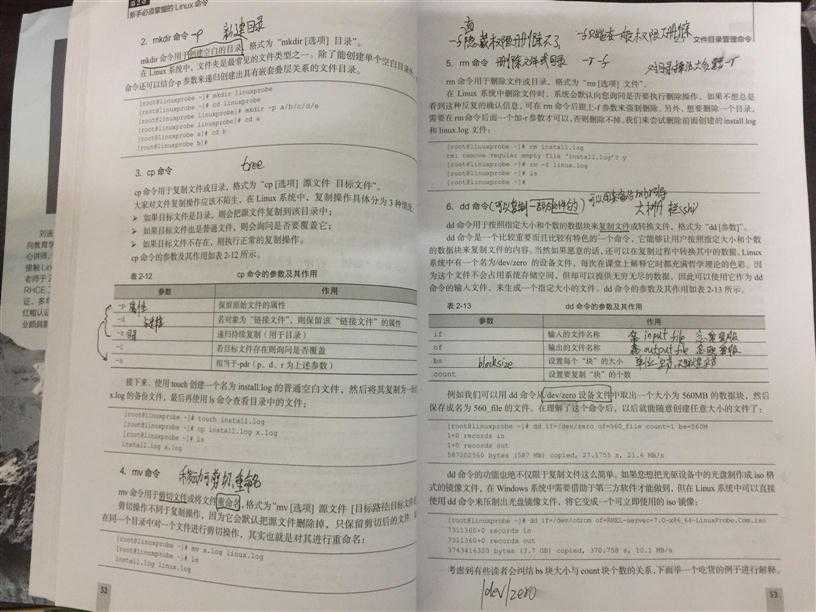 新手必须掌握的 Linux 命令
2. mkdir 命令 -p 新建目录
mkdir 命令用于创建空白的目录，格式为“mkdir [选项] 目录”。
在 Linux 系统中，文件夹是最常见的文件类型之一。除了能创建单个空白目录外，
命令还可以结合-p 参数来递归创建出具有嵌套叠层关系的文件目录。
[root@linuxprobe ~]# mkdir linuxprobe
[root@linuxprobe ~]# cd linuxprobe
[root@linuxprobe linuxprobe]# mkdir -p a/b/c/d/e
[root@linuxprobe linuxprobe]# cd a
[root@linuxprobe a]# cd b
[root@linuxprobe b]#
tree
3. cp 命令
cp 命令用于复制文件或目录，格式为“cp [选项] 源文件 目标文件”。
大家对文件复制操作应该不陌生，在 Linux 系统中，复制操作具体分为 3 种情况：
➢ 如果目标文件是目录，则会把源文件复制到该目录中；
➢ 如果目标文件也是普通文件，则会询问是否要覆盖它；
➢ 如果目标文件不存在，则执行正常的复制操作。
cp 命令的参数及其作用如表 2-12 所示。
表 2-12 cp 命令的参数及其作用
参数 作用
-p 属性 保留原始文件的属性
-d 若对象为“链接文件”，则保留该“链接文件”的属性
-r 递归持续复制（用于目录）
-i 若目标文件存在则询问是否覆盖
-a 相当于-pdr（p、d、r 为上述参数）
接下来，使用 touch 创建一个名为 install.log 的普通空白文件，然后将其复制为一份
x.log 的备份文件，最后再使用 ls 命令查看目录中的文件：
[root@linuxprobe ~]# touch install.log
[root@linuxprobe ~]# cp install.log x.log
[root@linuxprobe ~]# ls
install.log x.log
4. mv 命令 移动 剪切，重命名
mv 命令用于剪切文件或将文件重命名，格式为“mv [选项] 源文件 [目标路径|目标文件
剪切操作不同于复制操作，因为它会默认把源文件删除掉，只保留剪切后的文件。
在同一个目录中对一个文件进行剪切操作，其实也就是对其进行重命名：
[root@linuxprobe ~]# mv x.log linux.log
[root@linuxprobe ~]# ls
install.log linux.log
52
文件目录管理命令
5. rm 命令 删除文件或目录 -r -f
rm 命令用于删除文件或目录，格式为“rm [选项] 文件”。
在 Linux 系统中删除文件时，系统会默认向您询问是否要执行删除操作，如果不想总是
看到这种反复的确认信息，可在 rm 命令后跟上-f 参数来强制删除。另外，想要删除一个目录，
需要在 rm 命令后面一个加-r 参数才可以，否则删除不掉。我们来尝试删除前面创建的 install.log
和 linux.log 文件：
[root@linuxprobe ~]# rm install.log
rm: remove regular empty file 'install.log'? y
[root@linuxprobe ~]# rm -f linux.log
[root@linuxprobe ~]# ls
[root@linuxprobe ~]#
6. dd 命令
dd 命令用于按照指定大小和个数的数据块来复制文件或转换文件，格式为“dd [参数]”。
dd 命令是一个比较重要而且比较有特色的一个命令，它能够让用户按照指定大小和个数
的数据块来复制文件的内容。当然如果愿意的话，还可以在复制过程中转换其中的数据。Linux
系统中有一个名为/dev/zero 的设备文件，每次在课堂上解释它时都充满哲学理论的色彩。因
为这个文件不会占用系统存储空间，但却可以提供无穷无尽的数据，因此可以使用它作为 dd
命令的输入文件，来生成一个指定大小的文件。dd 命令的参数及其作用如表 2-13 所示。
表 2-13 dd 命令的参数及其作用
参数 作用
if 输入的文件名称 input file
of 输出的文件名称 output file
bs blocksize 设置每个“块”的大小
count 设置要复制“块”的个数
例如我们可以用 dd 命令从/dev/zero 设备文件中取出一个大小为 560MB 的数据块，然后
保存成名为 560_file 的文件。在理解了这个命令后，以后就能随意创建任意大小的文件了：
[root@linuxprobe ~]# dd if=/dev/zero of=560_file count=1 bs=560M
1+0 records in
1+0 records out
587202560 bytes (587 MB) copied, 27.1755 s, 21.6 MB/s
dd 命令的功能也绝不仅限于复制文件这么简单。如果您想把光驱设备中的光盘制作成 iso 格
式的镜像文件，在 Windows 系统中需要借助于第三方软件才能做到，但在 Linux 系统中可以直接
使用 dd 命令来压制出光盘镜像文件，将它变成一个可立即使用的 iso 镜像：
[root@linuxprobe ~]# dd if=/dev/cdrom of=RHEL-server-7.0-x86_64-LinuxProbe.Com.iso
7311360+0 records in
7311360+0 records out
3743416320 bytes (3.7 GB) copied, 370.758 s, 10.1 MB/s
考虑到有些读者会纠结 bs 块大小与 count 块个数的关系，下面举一个吃货的例子进行解释。
/dev/zero
53